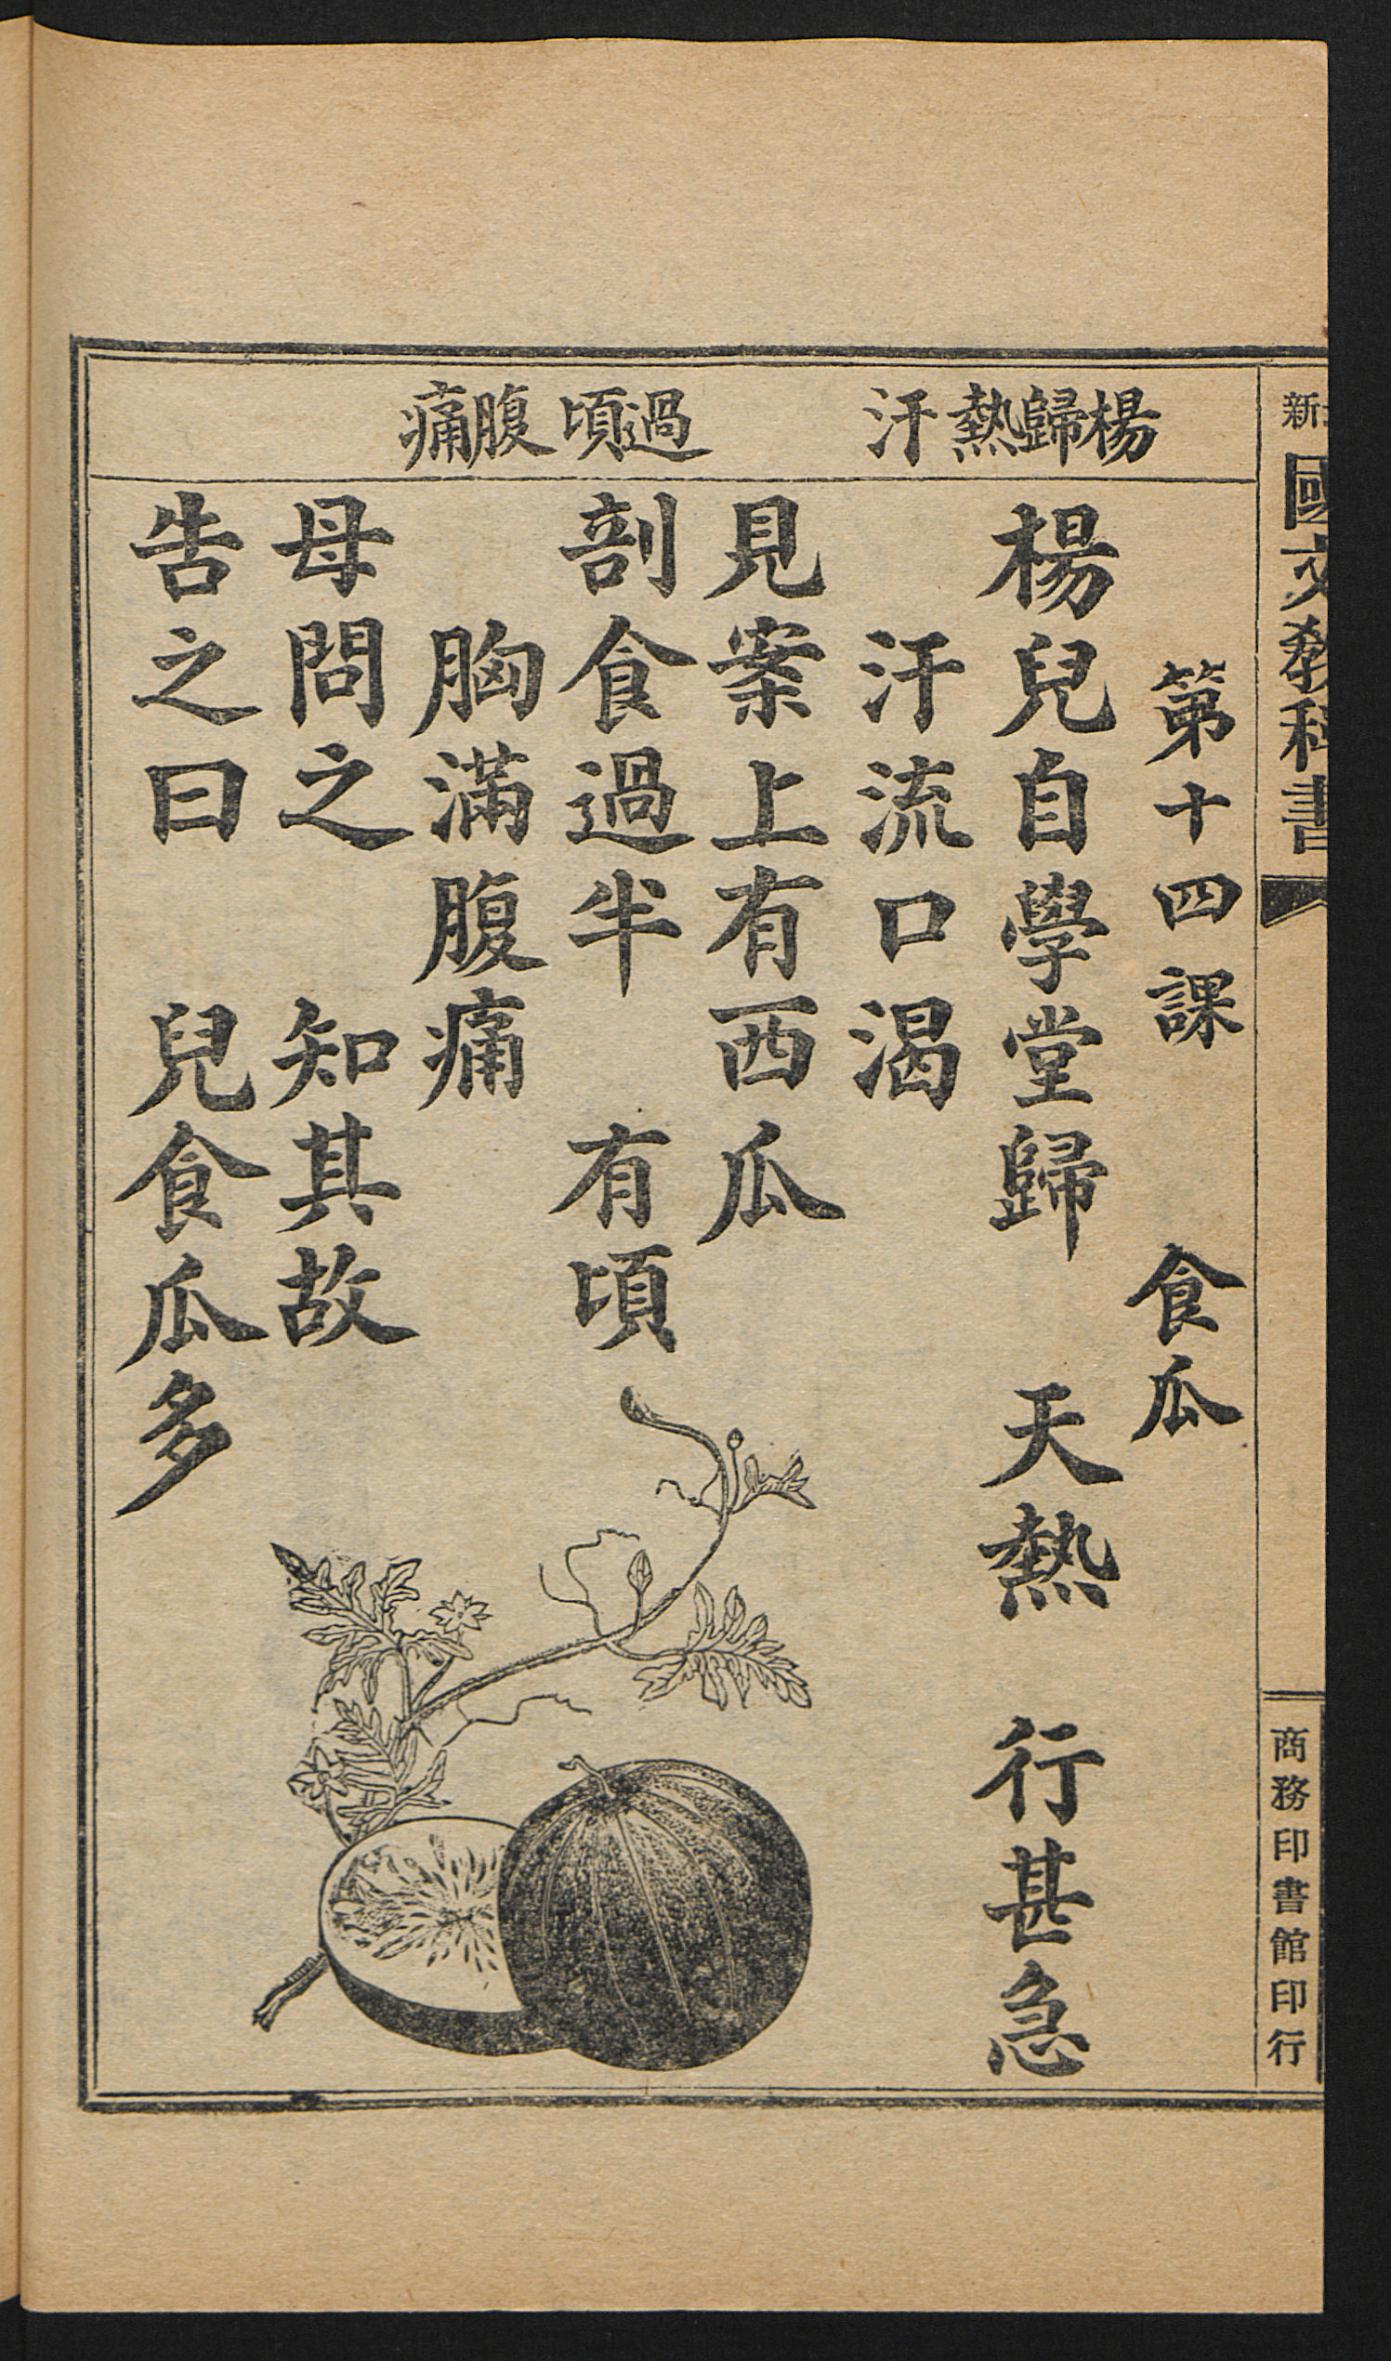 新
國文教科書
商務印書館印行
楊歸熱汗 過頃腹痛
第十四課 食瓜
楊兒自學堂歸 天熱 行甚急
汗流口渴
見案上有西瓜
剖食過半 有頃
胸滿腹痛
母問之 知其故
告之曰 兒食瓜多